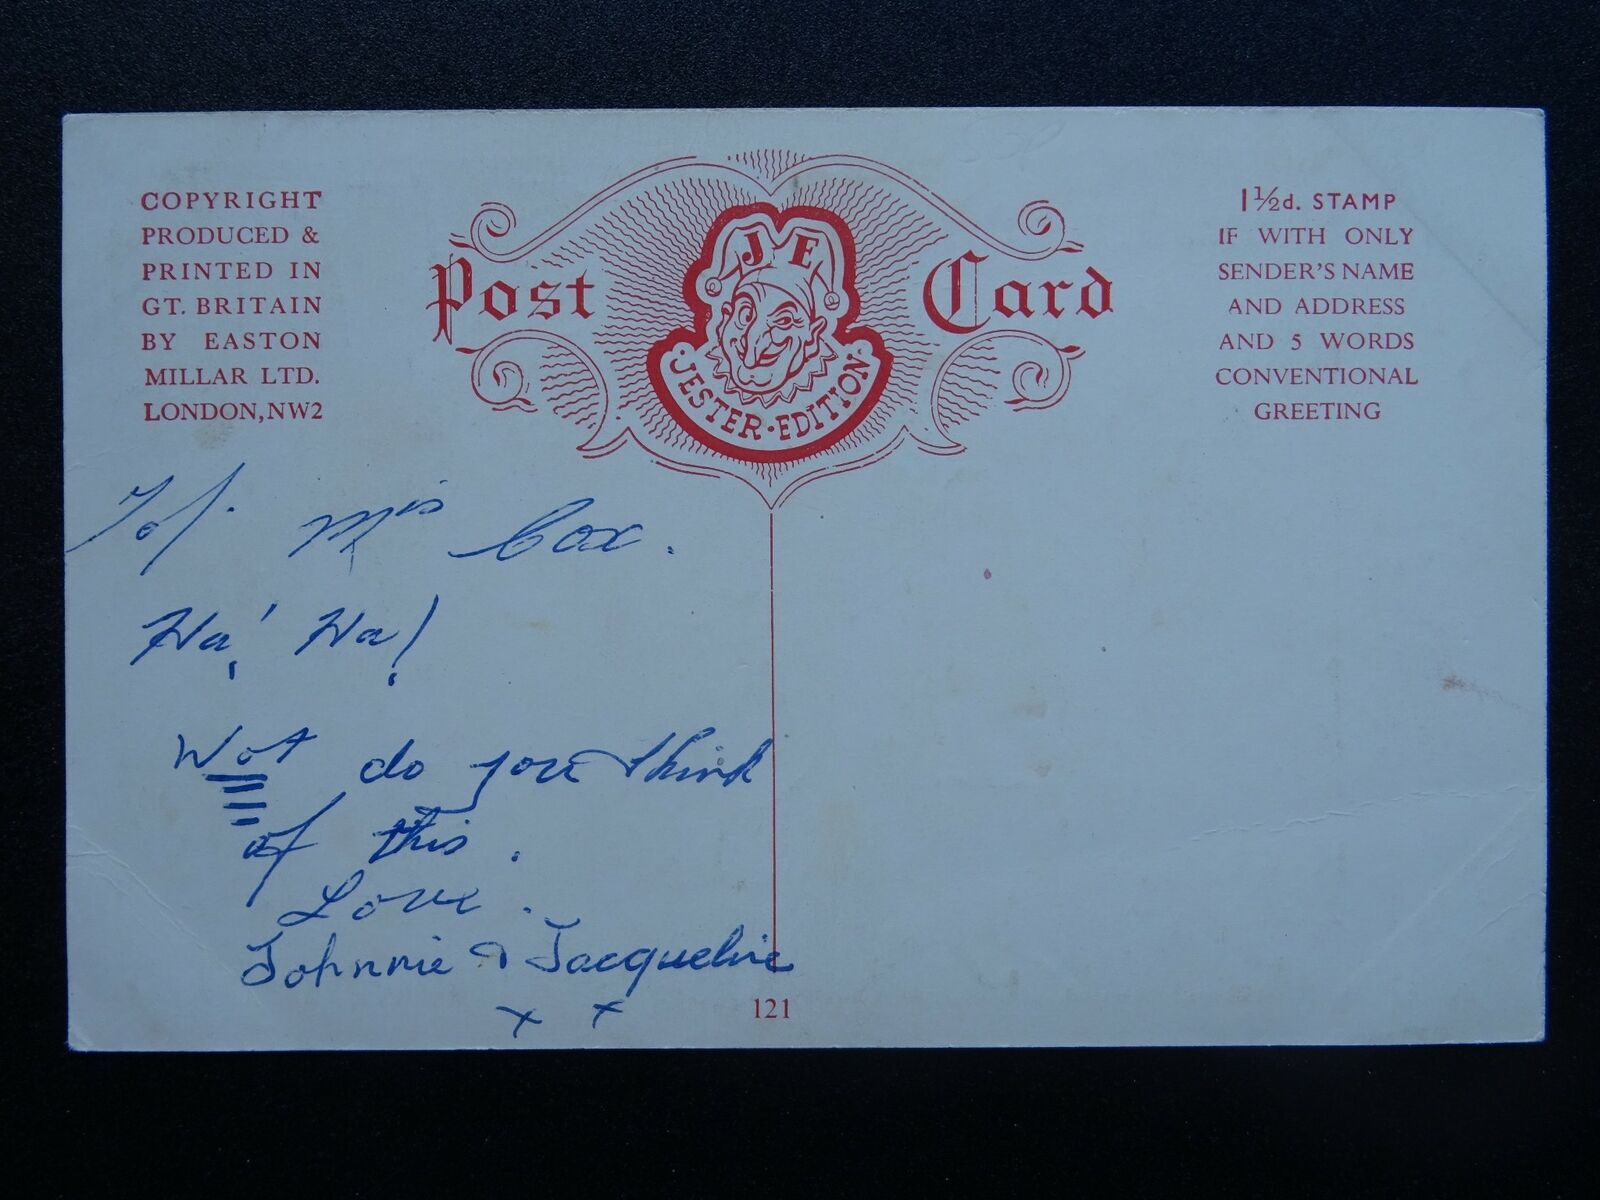 COPYRIGHT
PRODUCED &
PRINTED IN
GT. BRITAIN
BY EASTON
MILLAR LTD.
LONDON, NW2
Post Card
J E
JESTER · EDITION
1½d. STAMP
IF WITH ONLY
SENDER'S NAME
AND ADDRESS
AND 5 WORDS
CONVENTIONAL
GREETING
To/. Mrs Cox.
Ha! Ha!
Wot do you think
of this.
Love.
Johnnie & Jacqueline
x x
121